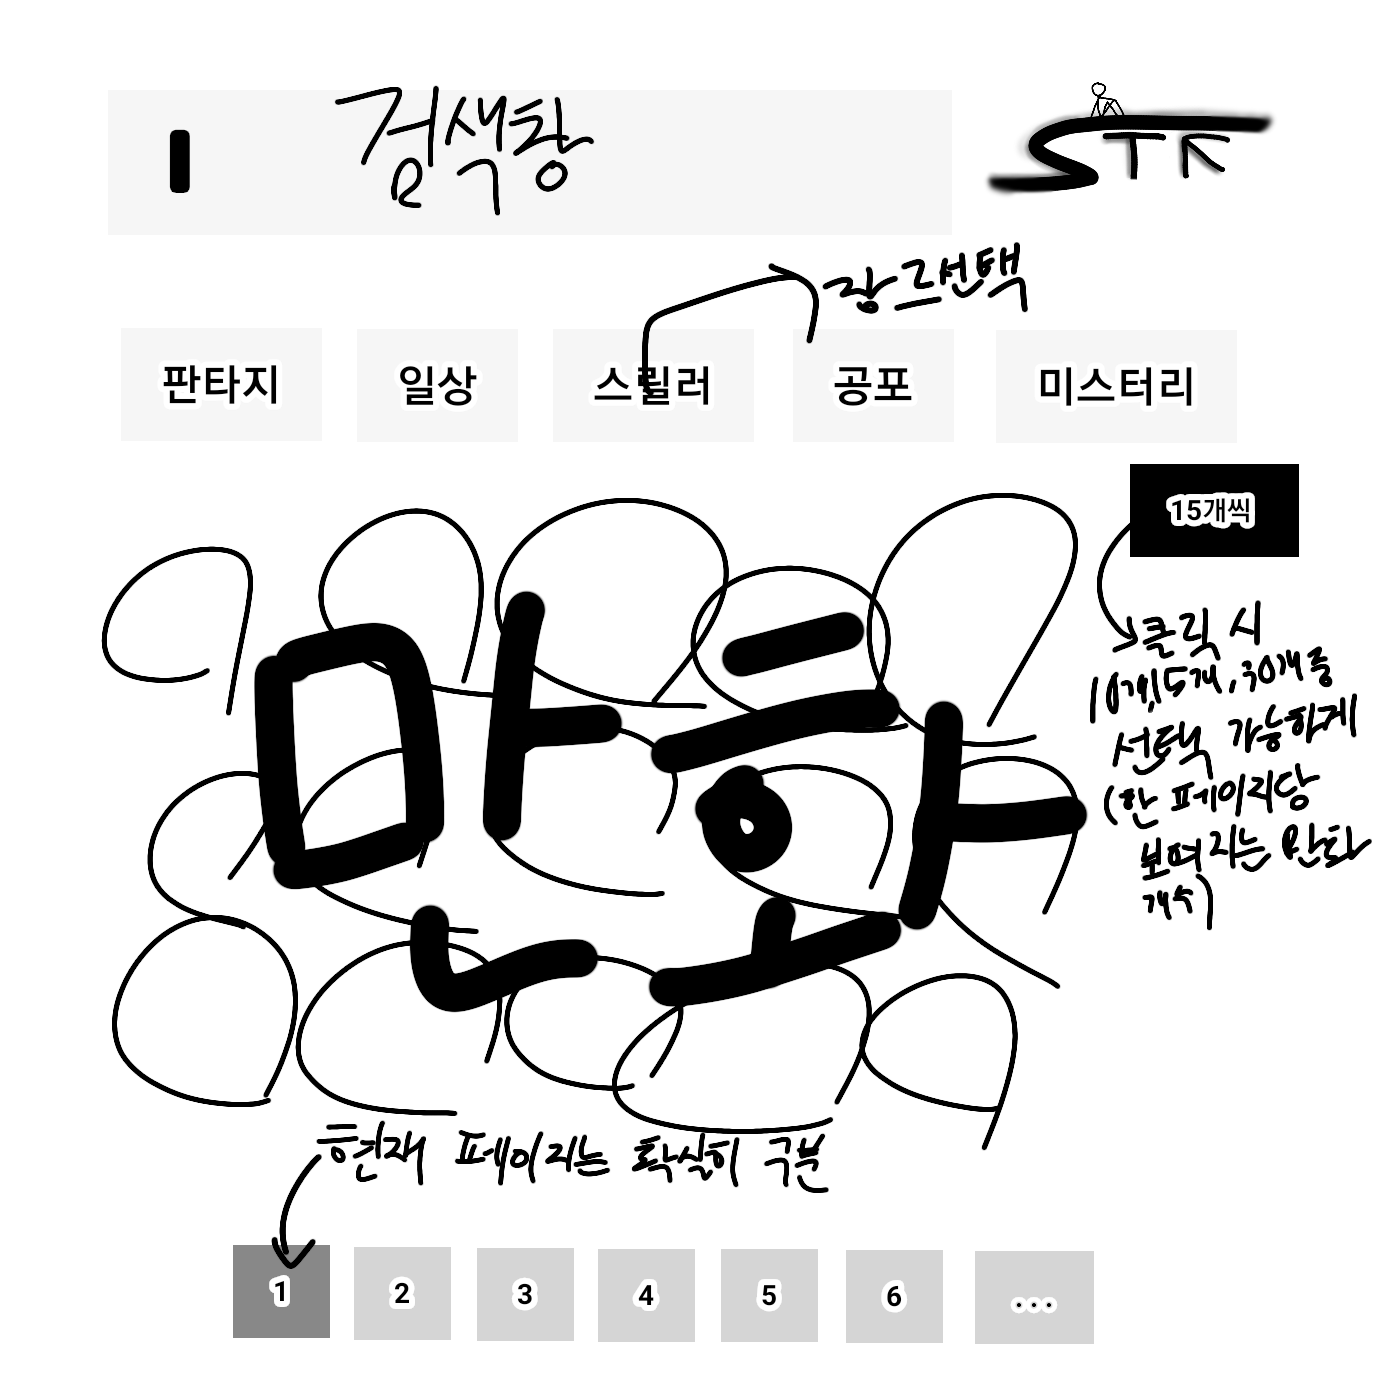 검색창
STR
장르선택
판타지 일상 스릴러 공포 미스터리
15개씩
클릭 시
10개, 15개, 30개 중
선택 가능하게
(한 페이지당
보여지는 만화
개수)
만화
현재 페이지는 확실히 구분
1 2 3 4 5 6 ...